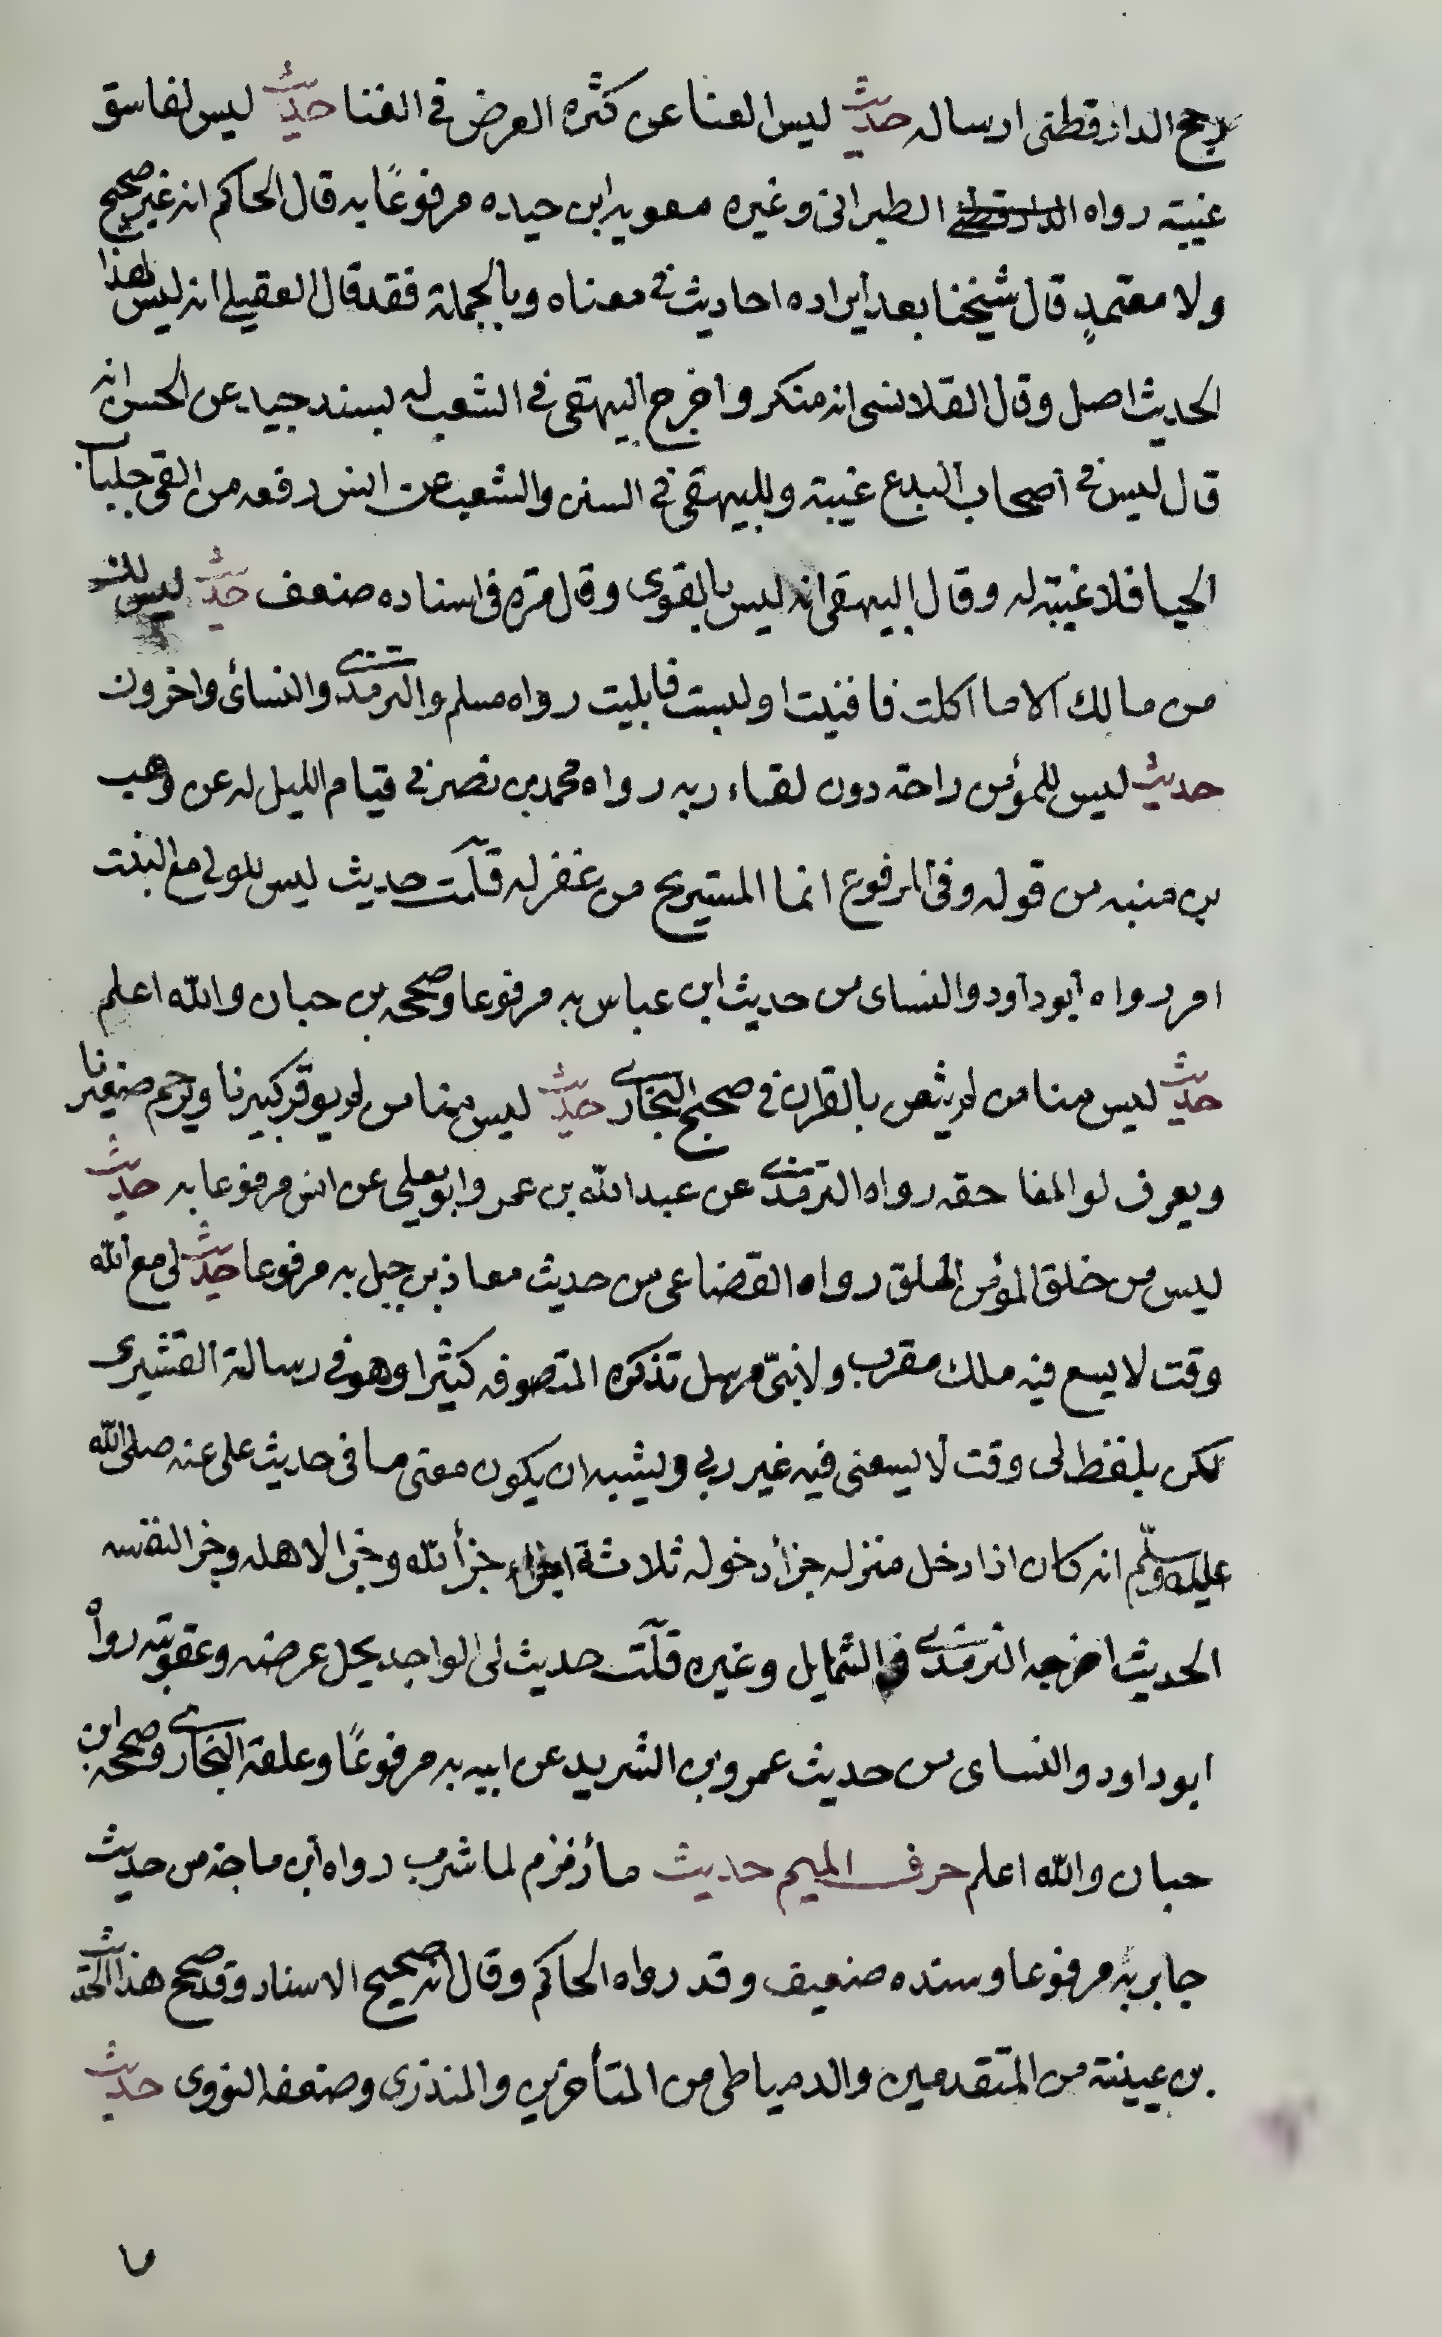 رجح الدارقطنى ارساله حديث ليس الغنا عن كثره العرض فى الغنا حديث ليس لفاسق
غيبة رواه الدارقطنى الطبرانى وغيره معويه ابن حيده مرفوعًا به قال الحاكم انه غير صحيح
ولا معتمدٍ قال شيخنا بعد أيراده احاديث فى معناه وبالجملة فقد قال العقيلى انه ليس لهذا
الحديث اصل وقال القلانسى انه منكر واخرج البيهقى فى الشعب له بسند جيد عن الحسن انه
قال ليس فى أصحاب البدع غيبة وللبيهقى فى السنن والشعب عن انس رفعه من القى جلباب
الحيا فلا غيبة له وقال البيهقى انه ليس بالقوى وقال مره فى اسناده ضعف حديث ليس لك
من مالك الا ما اكلت فافنيت اولبست فابليت رواه مسلم والترمذى والنسائى واخرون
حديث ليس للمؤمن راحة دون لقاء ربه رواه محمد بن نصر فى قيام الليل له عن وهب
بن منبه من قوله وفى المرفوع انما المستريح من غفر له قلت حديث ليس للولى مع البنت
امر رواه أبو داود والنساى من حديث ابن عباس به مرفوعا وصححه بن حبان والله اعلم
حديث ليس منا من لم يتغن بالقران فى صحيح البخارى حديث ليس منا من لم يوقر كبيرنا ويرحم صغيرنا
ويعرف لو المفا حقه رواه الترمذى عن عبد الله بن عمر وابو يعلى عن انس مرفوعا به حديث
ليس من خلق المؤمن الملق رواه القضاعى من حديث معاذ بن جبل به مرفوعا حديث لى مع الله
وقت لا يسع فيه ملك مقرب ولا نبىّ مرسل تذكره المتصوفه كثيرا وهو فى رسالة القشيرى
لكن بلفظ لى وقت لا يسعنى فيه غير ربى ويشبه ان يكون معنى ما فى حديث على عنه صلى الله
عليه وسلّم انه كان اذا دخل منزله جزأ دخوله ثلاثة اجزاء جزأ لله وجزا لاهله وجزا لنفسه
الحديث اخرجه الترمذى فى الشمايل وغيره قلت حديث لى الواجد يحل عرضه وعقوبته رواه
ابو داود والنساى من حديث عمرو بن الشريد عن ابيه به مرفوعًا وعلقه البخارى وصححه ابن
حبان والله اعلم حرف الميم حديث مأ زمزم لما شرب رواه أبن ماجة من حديث
جابر به مرفوعا وسنده ضعيف وقد رواه الحاكم وقال انه صحيح الاسناد وقد صحح هذا الحديث
بن عيينة من المتقدمين والدمياطى من المتأخرين والمنذرى وضعفه النووى حديث
ما